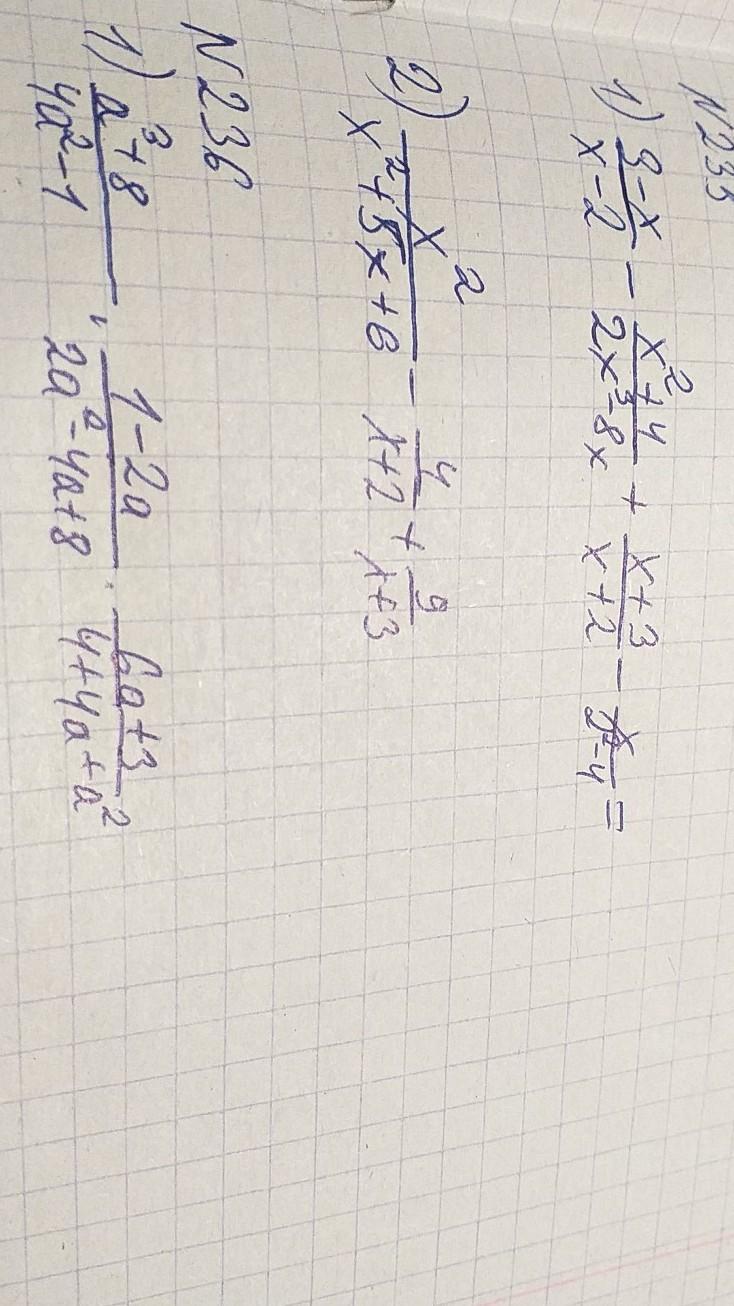 N 235
1) (3-x)/(x-2) - (x²+4)/(2x³-8x) + (x+3)/(x+2) - x/(x²-4) =
2) x²/(x²+5x+6) - 4/(x+2) + 9/(x+3)
N 236
1) (a³+8)/(4a²-1) : (1-2a)/(2a²-4a+8) · (6a+3)/(4+4a+a²)